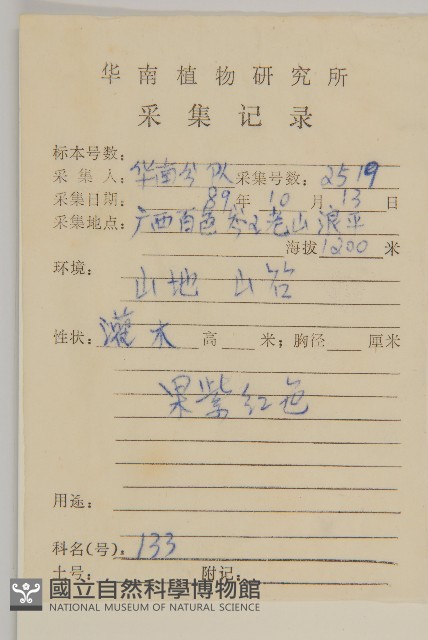 华南植物研究所
采集记录
标本号数:
采集人: 华南分队 采集号数: 2519
采集日期: 89年 10月 13日
采集地点: 广西百色岑王老山浪平
海拔 1200 米
环境: 山地 山谷
性状: 灌木 高 米; 胸径 厘米
果紫红色
用途:
科名(号): 133
土号: 附记:
國立自然科學博物館
NATIONAL MUSEUM OF NATURAL SCIENCE